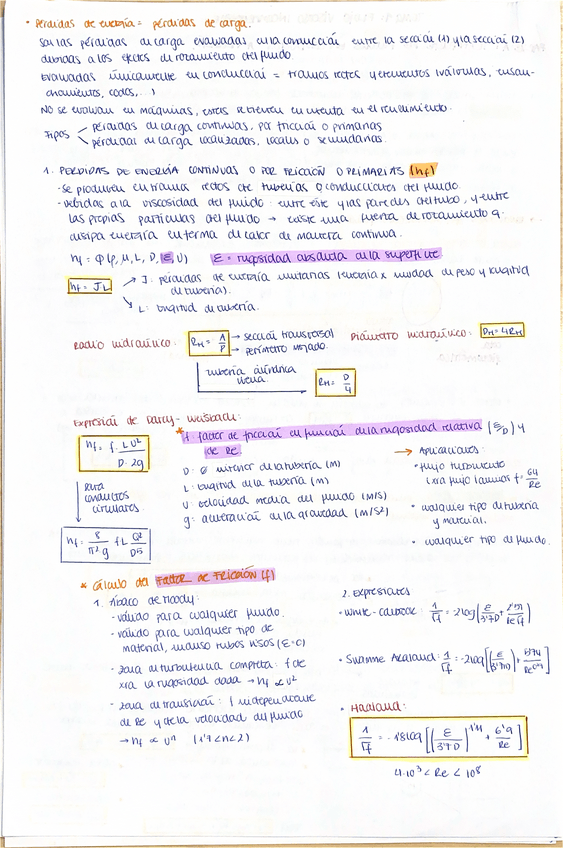 * Pérdidas de energía = pérdidas de carga.
Son las pérdidas de carga evaluadas en la conducción entre la sección (1) y la sección (2)
debidas a los efectos de rozamiento del fluido
Evaluadas únicamente en conducción = tramos rectos y elementos (válvulas, ensan-
chamientos, codos,...)
NO se evalúan en máquinas, entes se tienen en cuenta en el rendimiento.
Tipos
pérdidas de carga continuas, por fricción o primarias
pérdidas de carga localizadas, locales o secundarias.
1. PÉRDIDAS DE ENERGÍA CONTINUAS O POR FRICCIÓN O PRIMARIAS (hf)
- Se producen en tramos rectos de tuberías o conducciones del fluido.
- Debidas a la viscosidad del fluido: entre éste y las paredes del tubo, y entre
las propias partículas del fluido → existe una fuerza de rozamiento q.
disipa energía en forma de calor de manera continua.
hf = Φ(ρ, μ, L, D, ε, U) ε = rugosidad absoluta de la superficie.
hf = JL → J: pérdidas de energía unitarias (energía x unidad de peso y longitud
de tubería).
→ L: longitud de tubería.
Radio hidráulico: RH = A/P → sección transversal → perímetro mojado. Diámetro hidráulico: DH = 4RH
tubería cilíndrica
llena. RH = D/4
Expresión de Darcy-Weisbach:
hf = f · L U² / D · 2g
para
conductos
circulares
hf = 8/π²g f L Q²/D⁵
* f: factor de fricción en función de la rugosidad relativa (ε/D) y
de Re.
D: ø interior de la tubería (m)
L: longitud de la tubería (m)
U: velocidad media del fluido (m/s)
g: aceleración de la gravedad (m/s²)
→ Aplicaciones:
• flujo turbulento
(xra flujo laminar f = 64/Re
• cualquier tipo de tubería
y material.
• cualquier tipo de fluido.
* Cálculo del Factor de Fricción (f)
1. Ábaco de Moody:
- válido para cualquier fluido.
- válido para cualquier tipo de
material, incluso tubos lisos (ε=0)
- zona de turbulencia completa: f de
xra la rugosidad dada → hf ∝ U²
- zona de transición: f independiente
de Re y de la velocidad del fluido
→ hf ∝ Uⁿ (1'7<n<2)
2. Expresiones
• White-Colebrook: 1/√f = -2log(ε/3'7D + 2'51/Re√f)
• Swamme Acaland: 1/√f = -2log[(ε/3'7D) + 5'74/Re^0'9]
• Haaland:
1/√f = -1'8log[(ε/3'7D)^1'11 + 6'9/Re]
4·10³ < Re < 10⁸